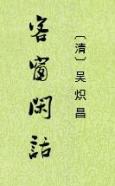 客窗閑話
〔清〕吴炽昌